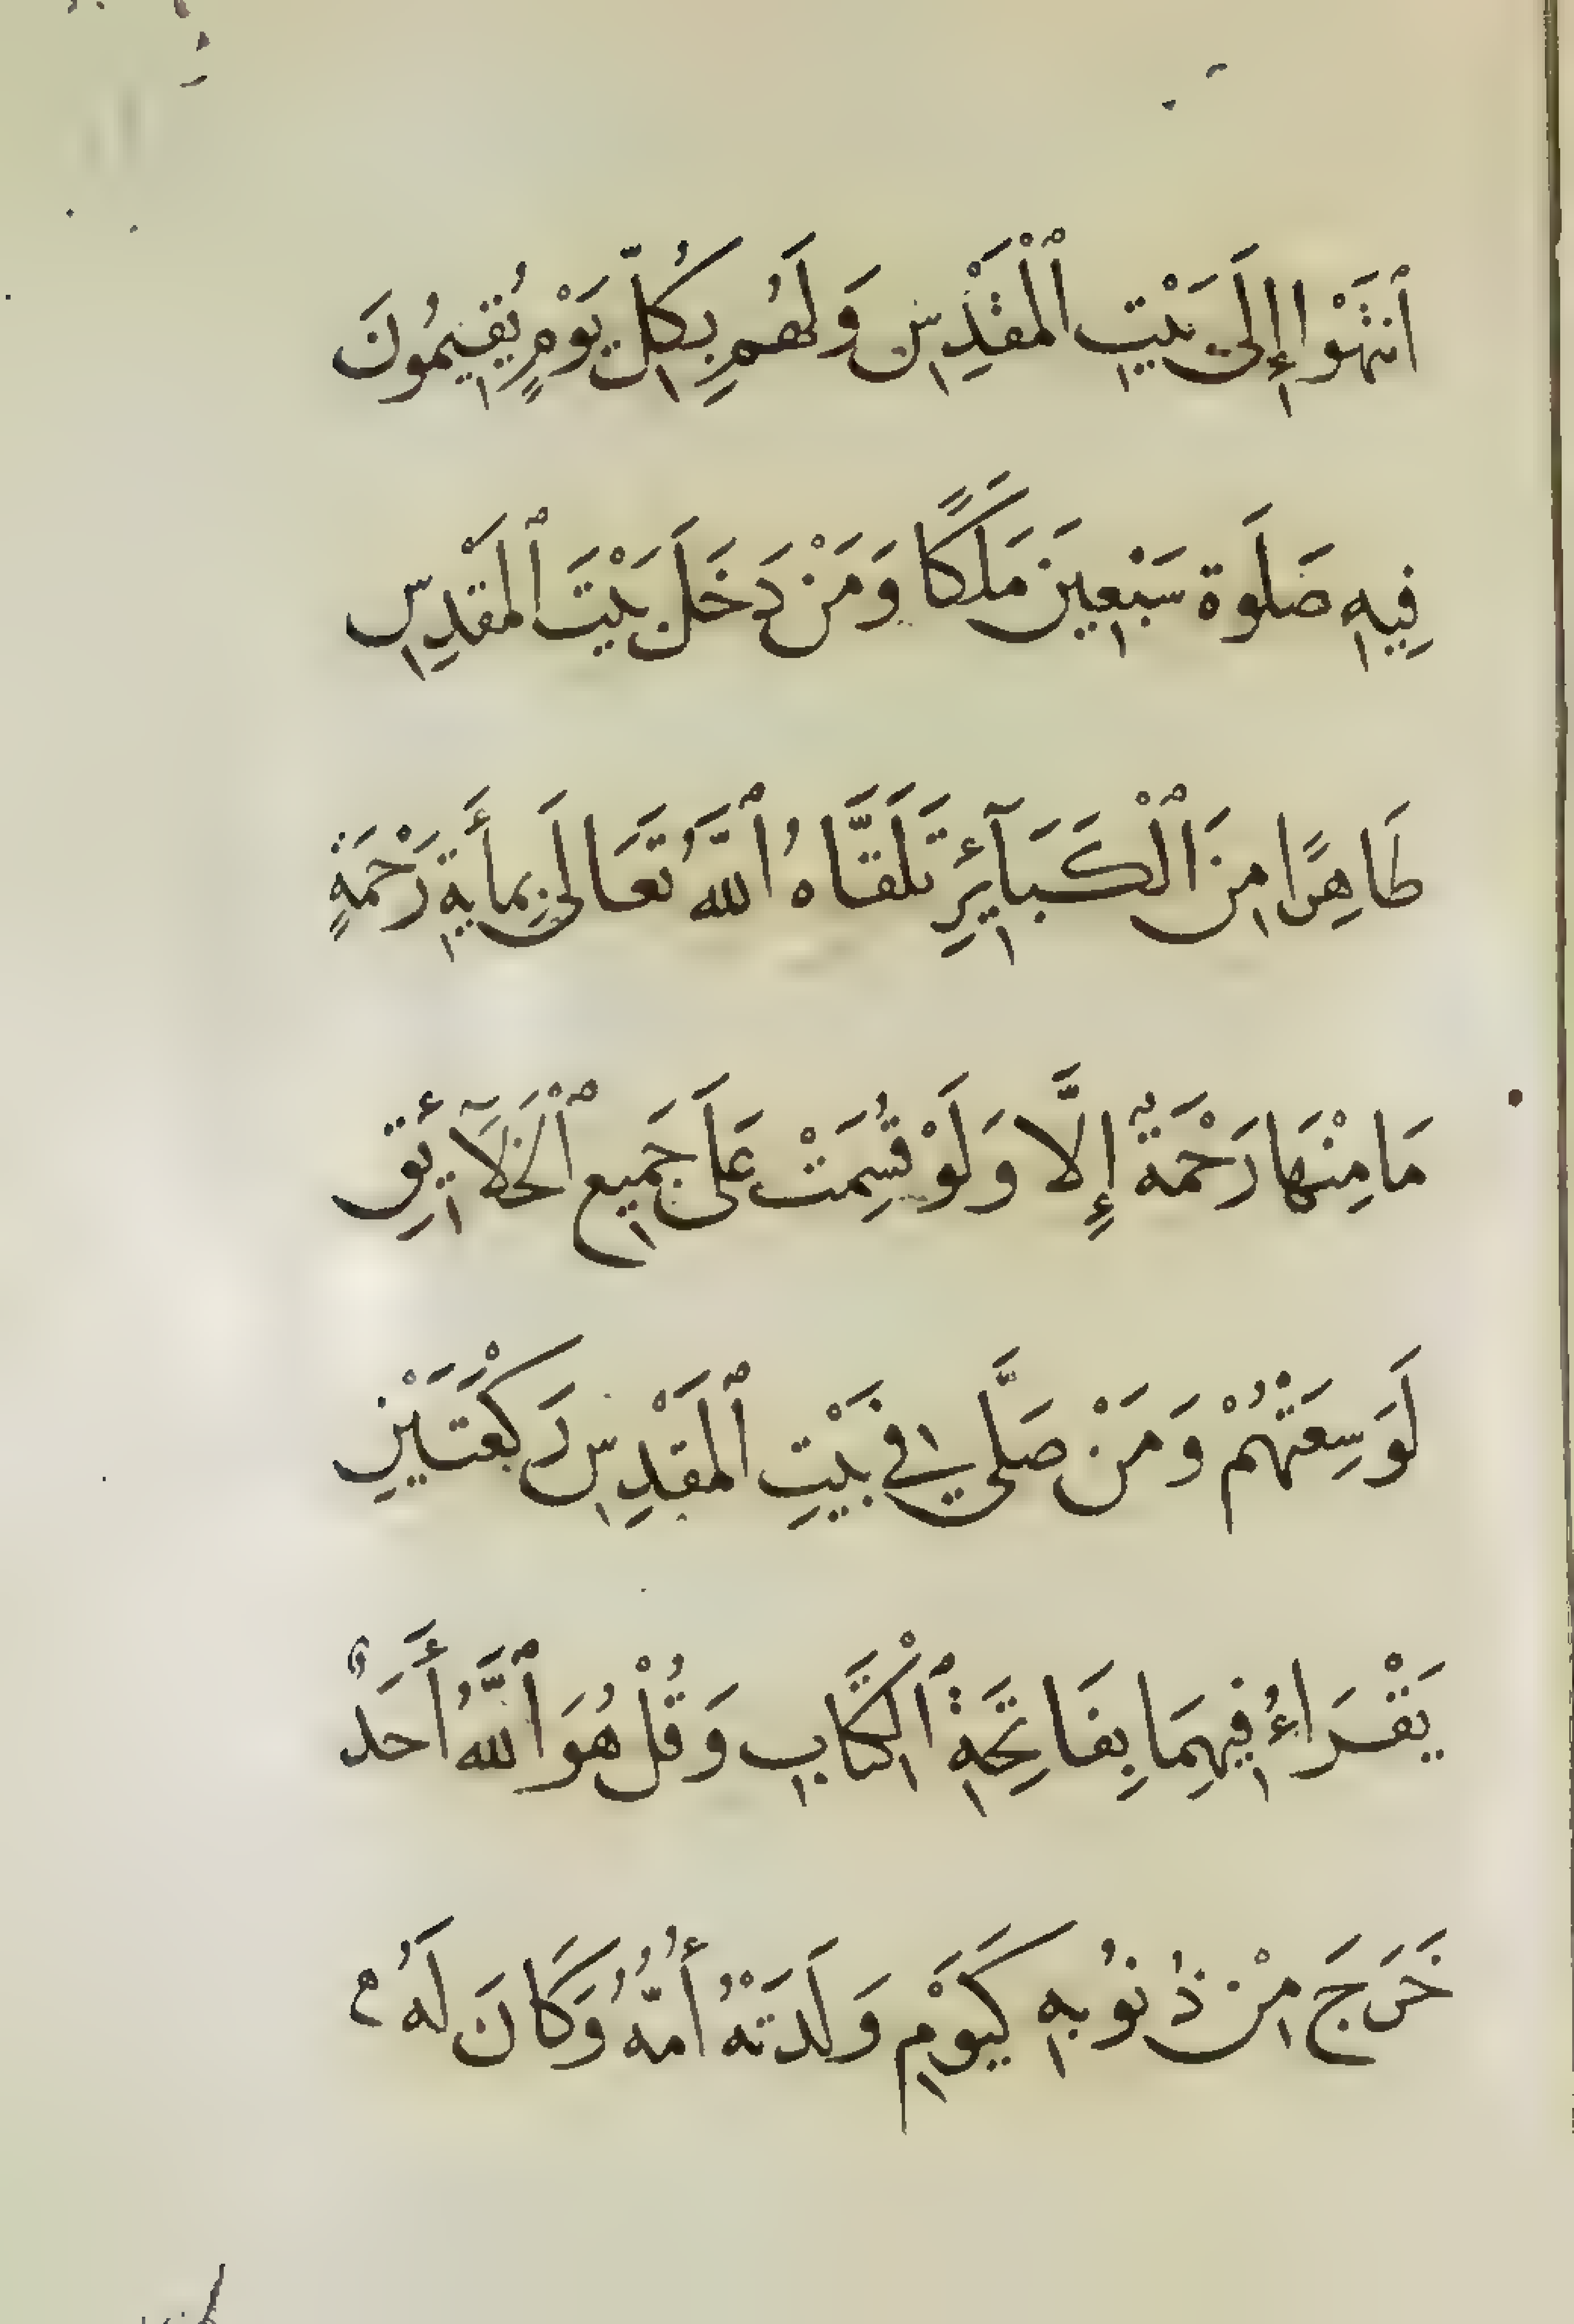 ٱنْتَهَوْا إِلَىٰ بَيْتِ ٱلْمَقْدِسِ وَلَهُمْ بِكُلِّ يَوْمٍ يُقِيمُونَ
فِيهِ صَلَوة سَبْعِينَ مَلَكًا وَمَنْ دَخَلَ بَيْتَ ٱلْمَقْدِسِ
طَاهِرًا مِنَ ٱلْكَبَآئِرِ تَلَقَّاهُ ٱللَّهُ تَعَالَى بِمِأَيَةِ رَحْمَةٍ
مَا مِنْهَا رَحْمَةٌ إِلَّا وَلَوْ قُسِمَتْ عَلَى جَمِيعِ ٱلْخَلَآئِقِ
لَوَسِعَتْهُمْ وَمَنْ صَلَّى فِي بَيْتِ ٱلْمَقْدِسِ رَكْعَتَيْنِ
يَقْرَاءُ فِيهِمَا بِفَاتِحَةِ ٱلْكِتَابِ وَقُلْ هُوَ ٱللَّهُ أَحَدٌ
خَرَجَ مِنْ ذُنُوبِهِ كَيَوْمِ وَلَدَتْهُ أُمُّهُ وَكَانَ لَهُ